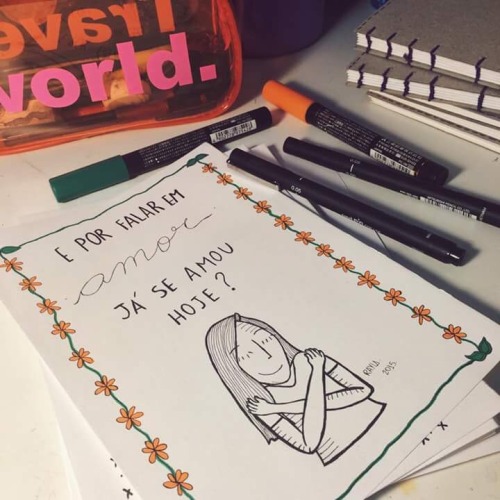 Travel
world.
E POR FALAR EM
amor
JÁ SE AMOU
HOJE?
2015
0.05